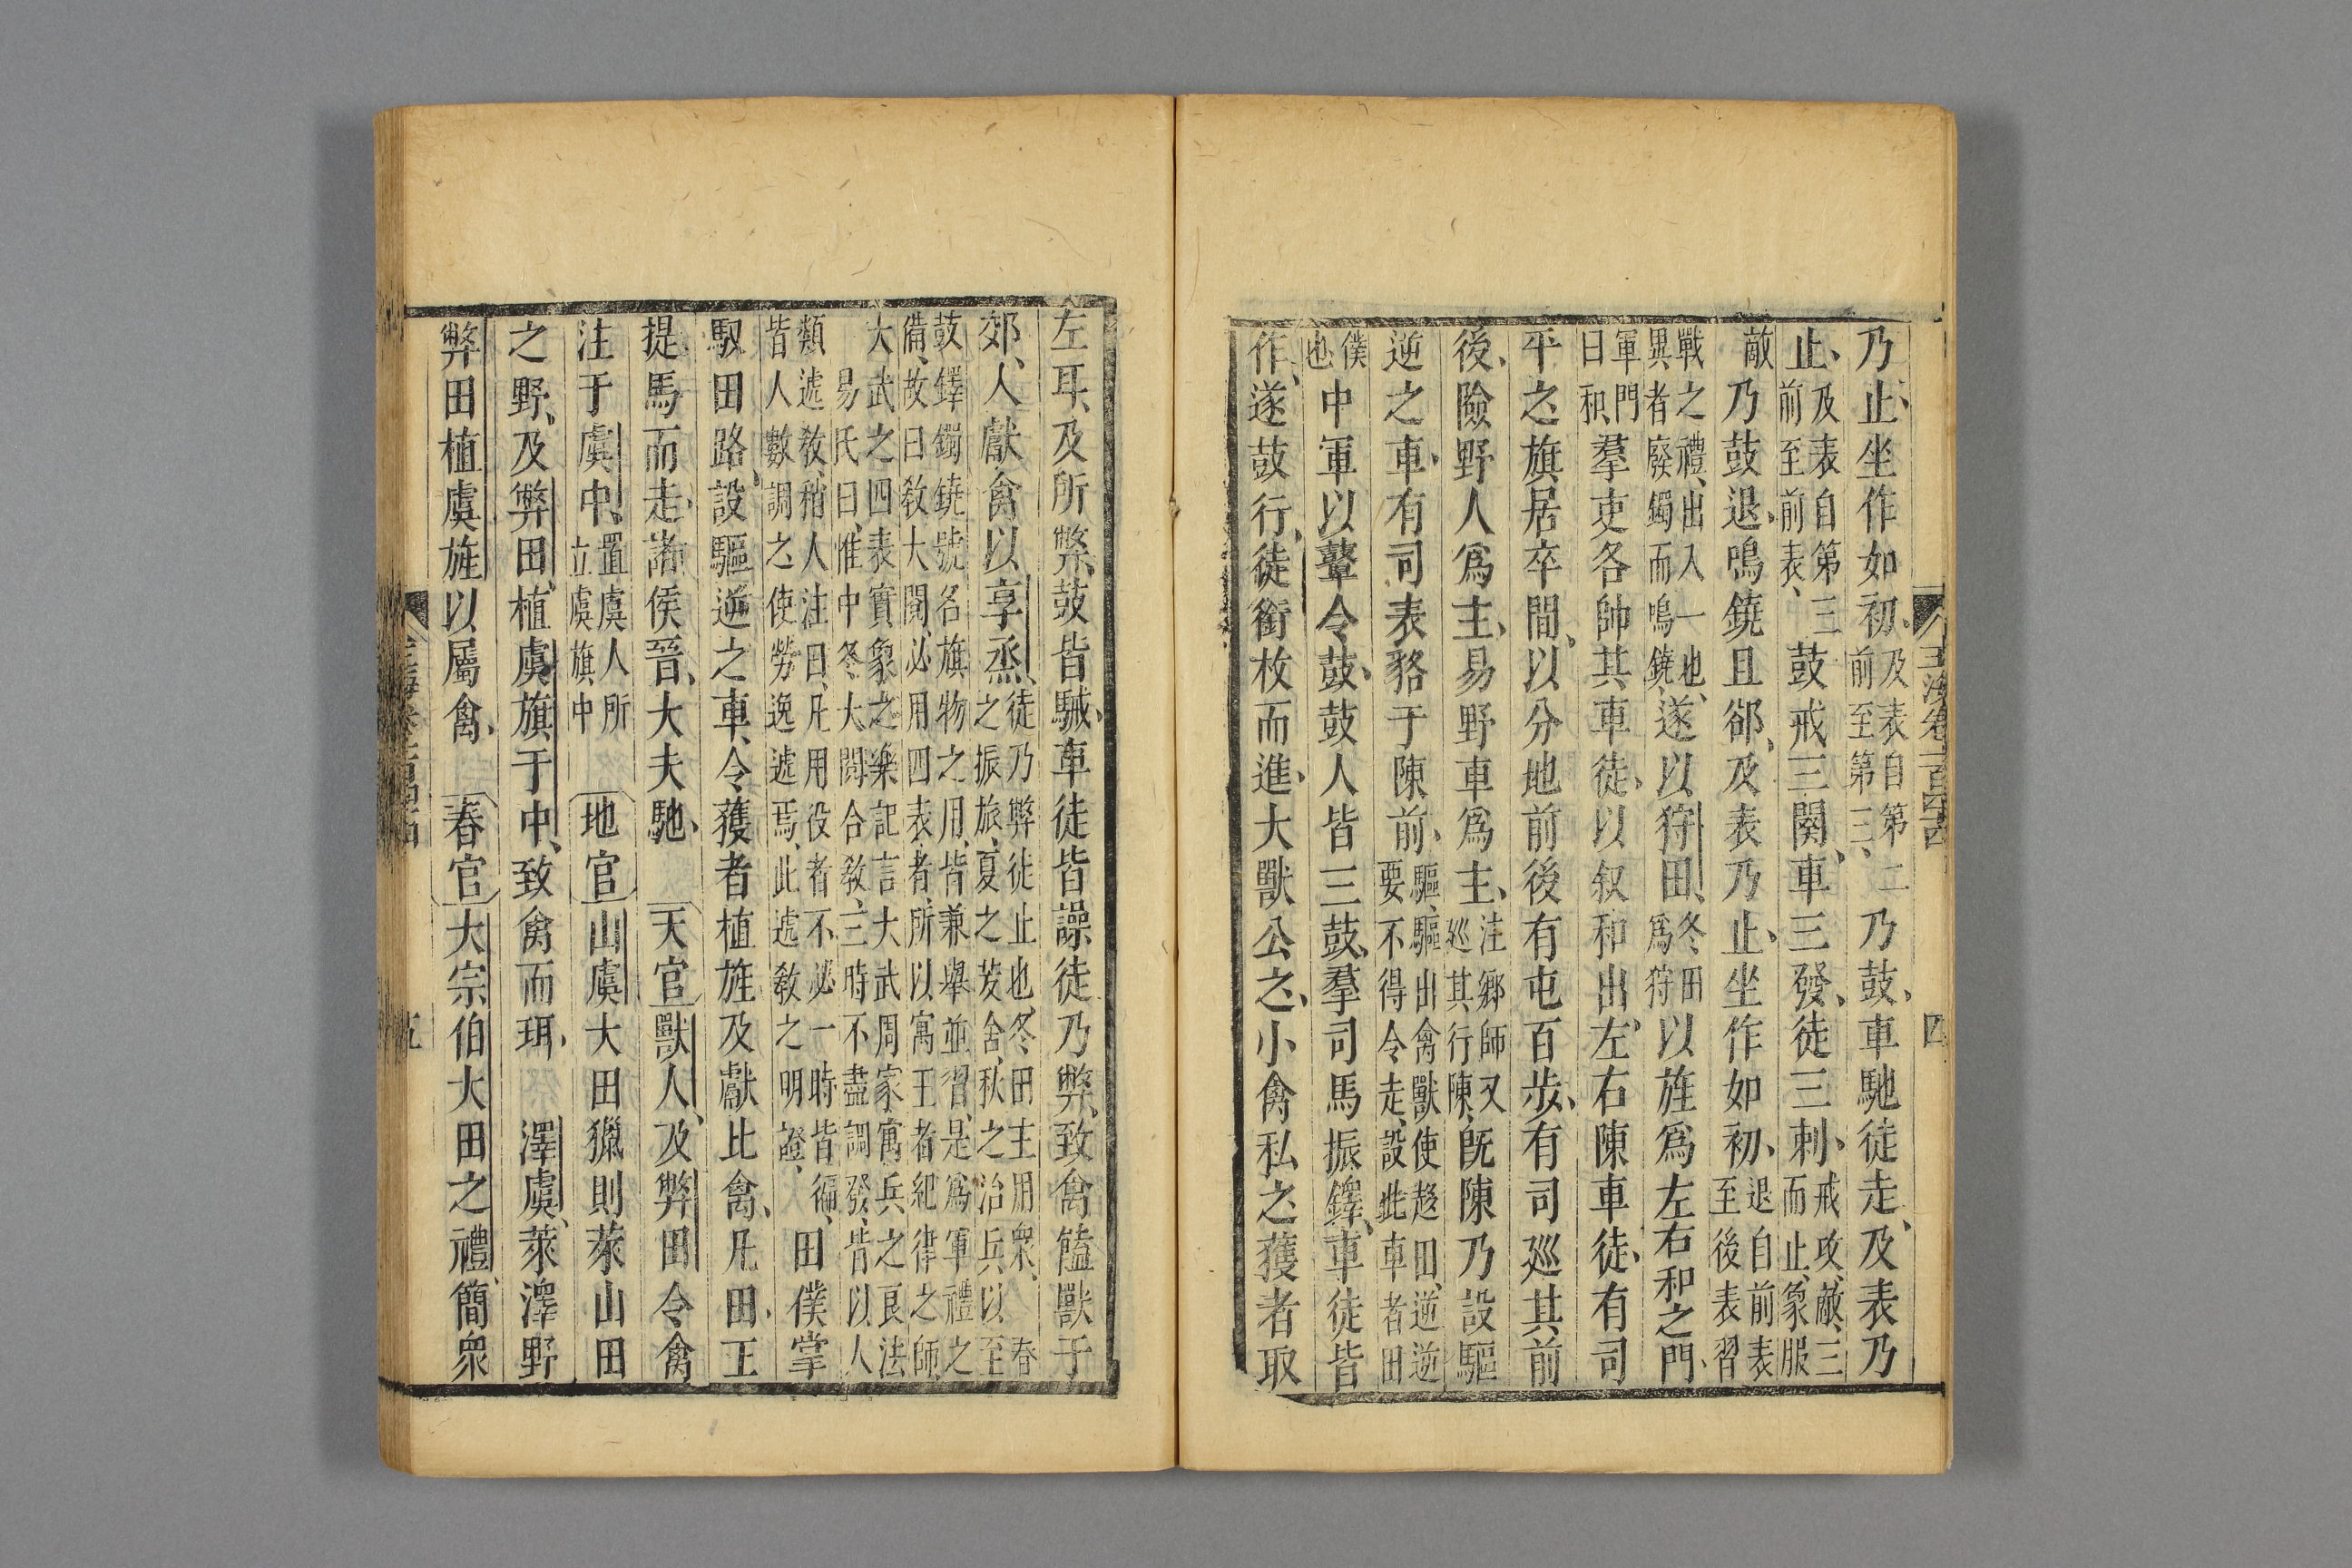 乃止坐作如初及表自第二前至第三乃鼓車馳徒走及表乃
止及表自第三前至前表鼓戒三闋車三發徒三刺戒攻敵三而止象服
敵乃鼓退鳴鐃且郤及表乃止坐作如初退自前表至後表習
戰之禮出入一也異者廢鐲而鳴鐃遂以狩田冬田爲狩以旌爲左右和之門
軍門曰和羣吏各帥其車徒以叙和出左右陳車徒有司
平之旗居卒間以分地前後有屯百步有司廵其前
後險野人爲主易野車爲主注鄉師又廵其行陳旣陳乃設驅
逆之車有司表貉于陳前驅驅出禽獸使趍田逆逆要不得令走設此車者田
僕也中軍以鼙令鼓鼓人皆三鼓羣司馬振鐸車徒皆
作遂鼓行徒銜枚而進大獸公之小禽私之獲者取
玉海卷一百四十四
四
左耳及所弊鼓皆駴車徒皆譟徒乃弊致禽饁獸于
郊人獻禽以享烝徒乃弊徒止也冬田主用衆春之振旅夏之茇舍秋之治兵以至
鼓鐸鐲鐃號名旗物之用皆兼舉並習是爲軍禮之備故曰敎大閱必用四表者所以寓王者紀律之師
大武之四表實象之樂記言大武周家寓兵之良法易氏曰惟中冬大閱合敎三時不盡調發昔以人
類遽敎稍人注曰凡用役者不必一時皆徧皆人數調之使勞逸遽焉此遽敎之明證田僕掌
馭田路設驅逆之車令獲者植旌及獻比禽凡田王
提馬而走諸侯晉大夫馳天官獸人及弊田令禽
注于虞中置虞人所立虞旗中地官山虞大田獵則萊山田
之野及弊田植虞旗于中致禽而珥澤虞萊澤野
弊田植虞旌以屬禽春官大宗伯大田之禮簡衆
五